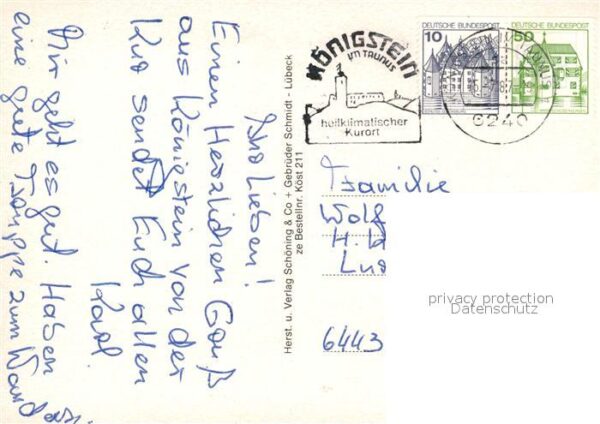 Ihr Lieben!
Einen Herzlichen Gruß
aus Königstein von der
Kur sendet Euch allen
Karl
Mir geht es gut. Haben
eine gute Truppe zum Wandern
Herst. u. Verlag Schöning & Co + Gebrüder Schmidt - Lübeck
ze Bestellnr. Köst 211
KÖNIGSTEIN
IM TAUNUS
heilklimatischer
Kurort
10 DEUTSCHE BUNDESPOST
50 DEUTSCHE BUNDESPOST
6240
Familie
Wolf
H.
Lud
6443
privacy protection
Datenschutz